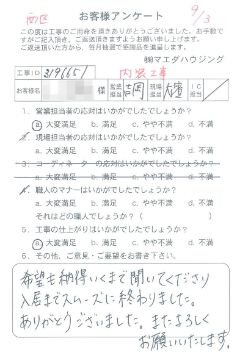 西区
9/3
お客様アンケート
この度は工事のご用命を頂きありがとうございました。お手数で
すがご記入頂き、ご返送頂きますようお願い申し上げます。
ご返送頂いた方から、毎月抽選で粗品進呈します。
㈱マエダハウジング
工事ID 3196651 内装工事
お客様名 様 営業担当 吉岡 現場担当
1. 営業担当者の応対はいかがでしたでしょうか?
a. 大変満足 b. 満足 c. やや不満 d. 不満
2. 現場担当者の応対はいかがでしたでしょうか?
a. 大変満足 b. 満足 c. やや不満 d. 不満
3. コーディネーターの応対はいかがでしたでしょうか?
a. 大変満足 b. 満足 c. やや不満 d. 不満
4. 職人のマナーはいかがでしたでしょうか?
a. 大変満足 b. 満足 c. やや不満 d. 不満
それはどの職人でしょうか?( )
5. 工事の仕上がりはいかがでしたでしょうか?
a. 大変満足 b. 満足 c. やや不満 d. 不満
6. その他、ご意見・ご要望をお書き下さい。
希望も納得いくまで聞いてくださり
入居までスムーズに終わりました。
ありがとうございました。またよろしく
お願いいたします。